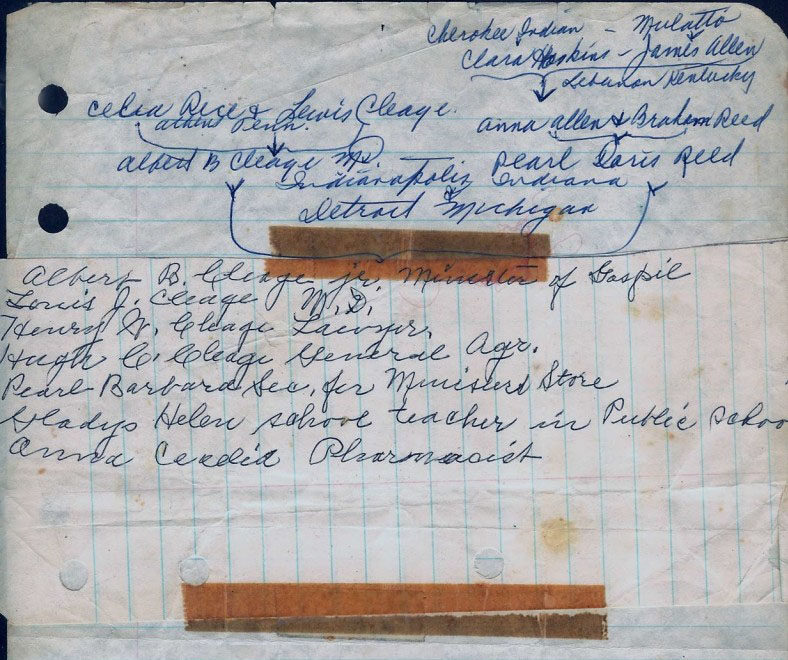 Cherokee Indian - Mulatto
Clara Hoskins - James Allen
Lebanon Kentucky
Celia Rice & Lewis Cleage.
Athens Tenn.
Anna Allen & Braham Reed
Albert B Cleage Md. — Pearl Doris Reed
Indianapolis Indiana
Detroit & Michigan
Albert B. Cleage jr. Minister of Gospil
Louis J. Cleage M.D.
Henry W. Cleage Lawyer.
Hugh C. Cleage General Agr.
Pearl Barbara Sec. for Store
Gladys Helen school teacher in Public Schoo
Anna Pharmacist